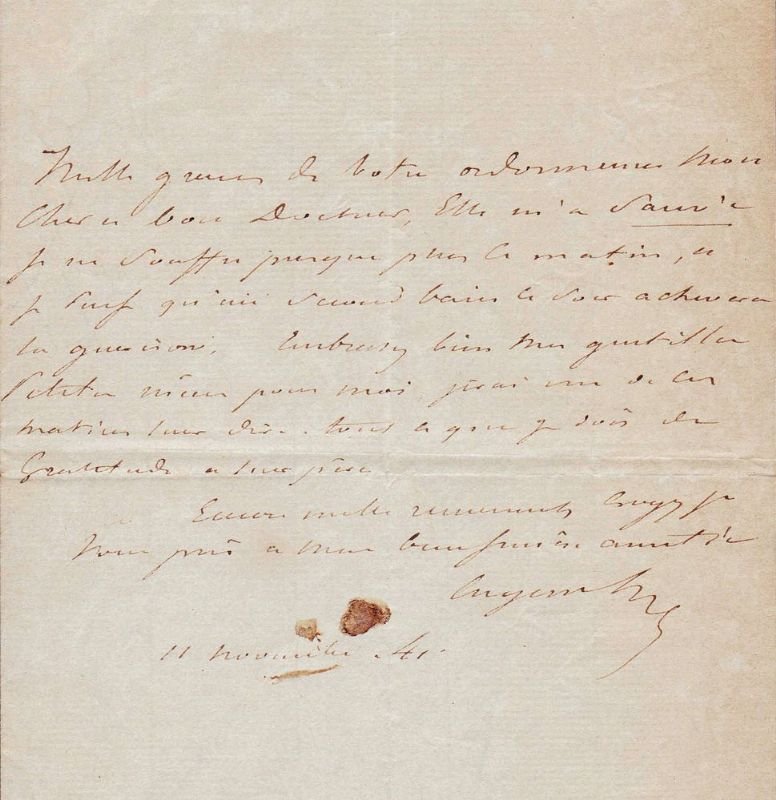 Mille graces de votre ordonnance mon
cher et bon Docteur, Elle m'a sauvé
je ne souffre presque plus le matin, et
je suis qu'un second bain le soir achevera
la guerison. Embrassez bien mes gentilles
petites pour moi, j'irai un de ces
matins leur dire tout ce que je dois de
gratitude a leur père
Encore mille remerciements croyez je
vous prie a mon bien sincère amitié
Eugène Sue
11 novembre 41.